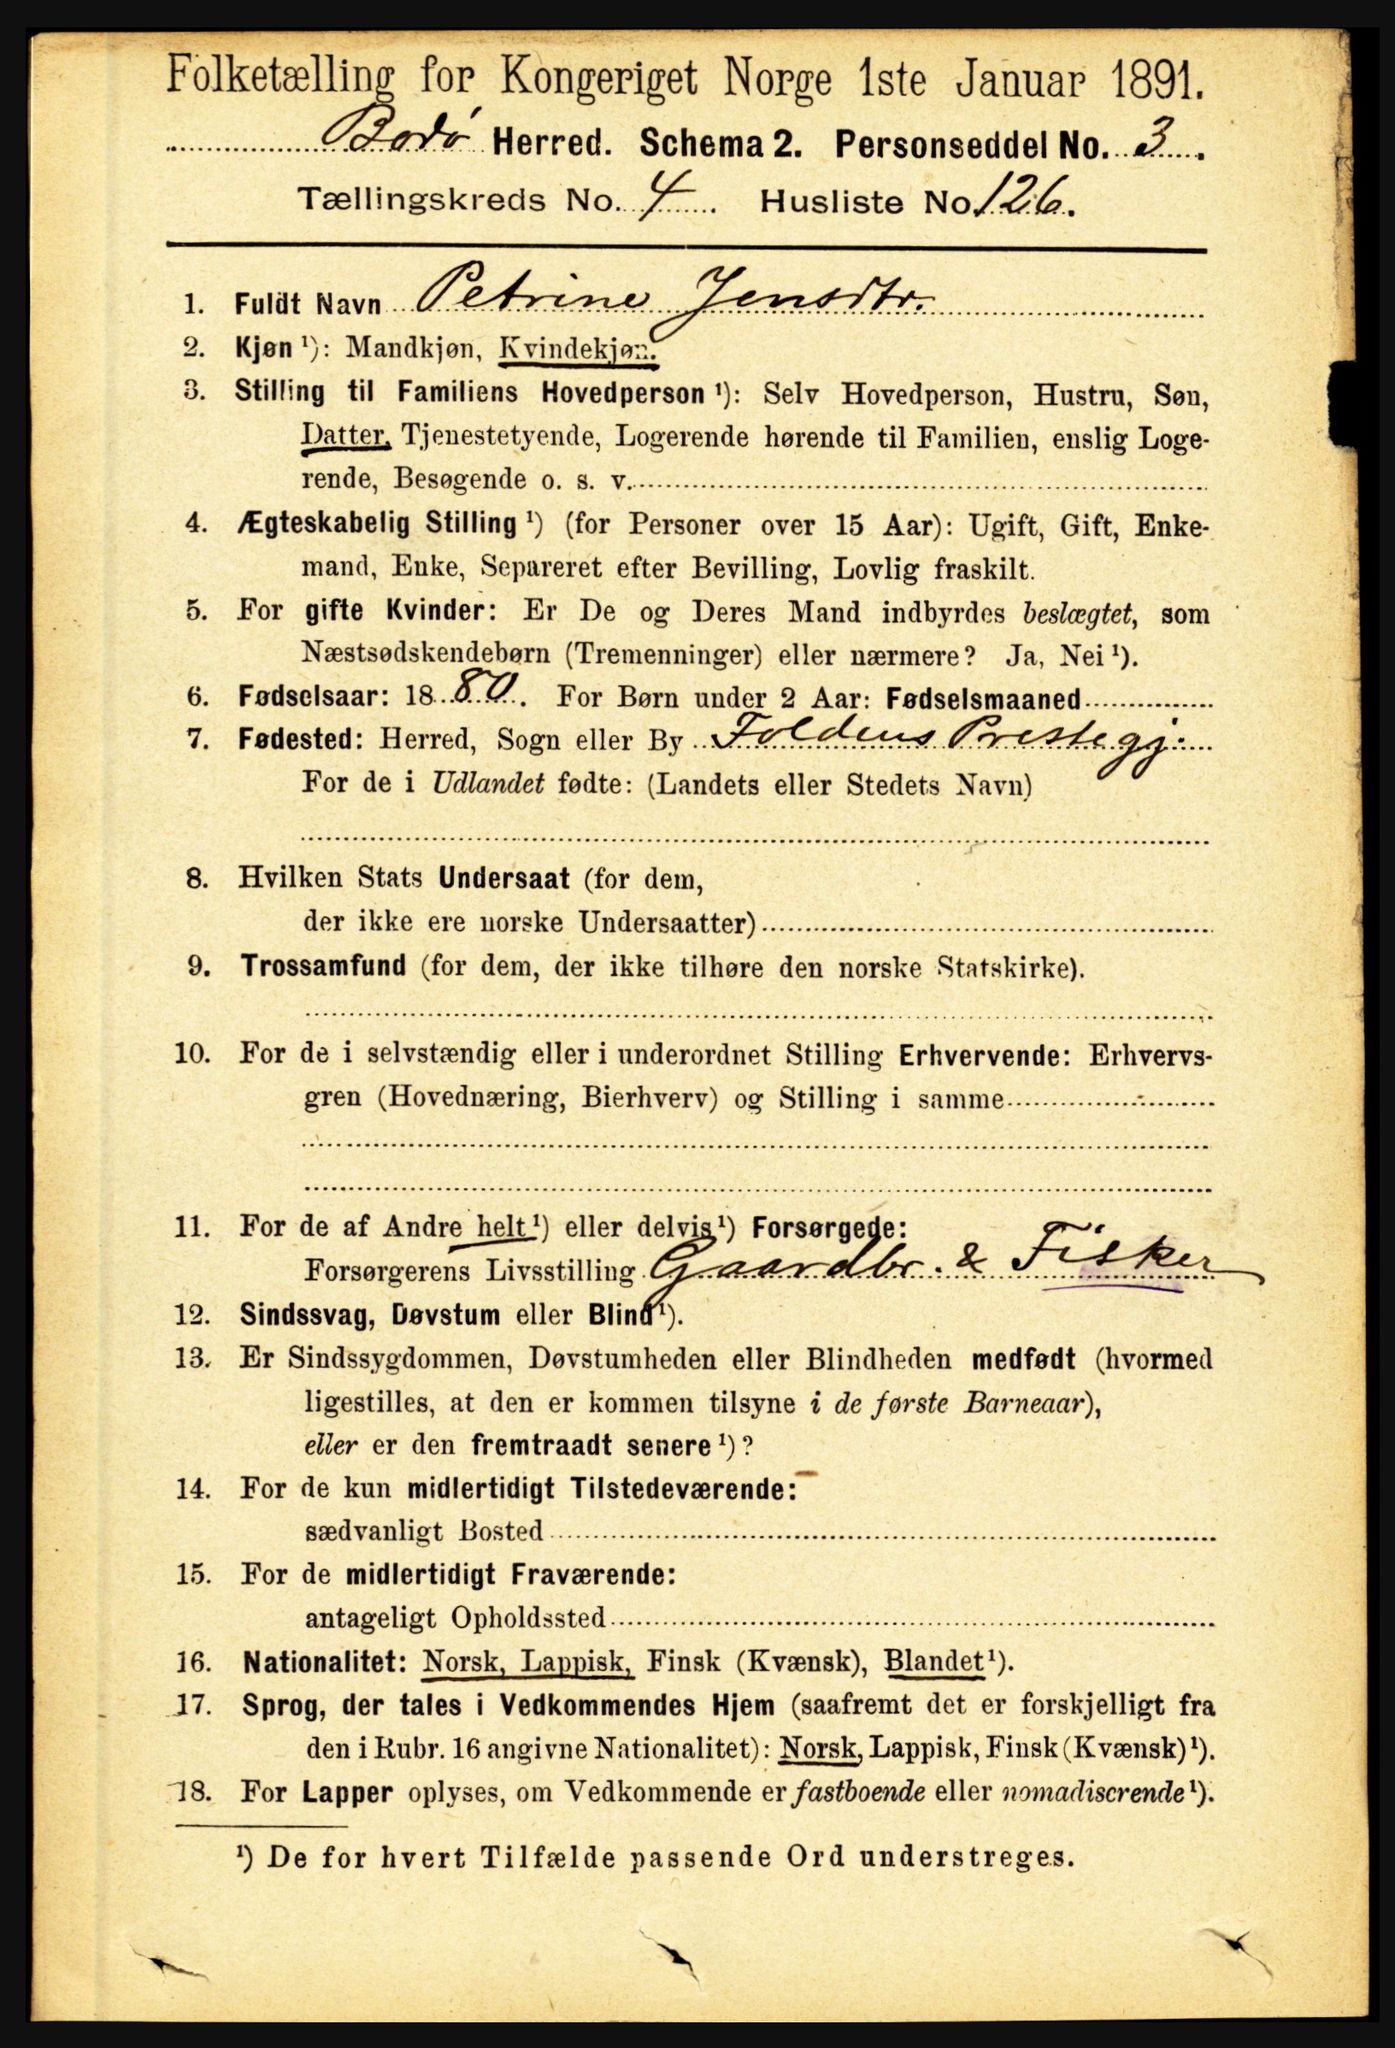 Folketælling for Kongeriget Norge 1ste Januar 1891.
Bodø Herred. Schema 2. Personseddel No. 3.
Tællingskreds No. 4. Husliste No. 126.
1. Fuldt Navn Petrine Jensdtr.
2. Kjøn ¹): Mandkjøn, Kvindekjøn.
3. Stilling til Familiens Hovedperson ¹): Selv Hovedperson, Hustru, Søn,
Datter, Tjenestetyende, Logerende hørende til Familien, enslig Loge-
rende, Besøgende o. s. v.
4. Ægteskabelig Stilling ¹) (for Personer over 15 Aar): Ugift, Gift, Enke-
mand, Enke, Separeret efter Bevilling, Lovlig fraskilt.
5. For gifte Kvinder: Er De og Deres Mand indbyrdes beslægtet, som
Næstsødskendebørn (Tremenninger) eller nærmere? Ja, Nei ¹).
6. Fødselsaar: 1880. For Børn under 2 Aar: Fødselsmaaned
7. Fødested: Herred, Sogn eller By Foldens Prestegj.
For de i Udlandet fødte: (Landets eller Stedets Navn)
8. Hvilken Stats Undersaat (for dem,
der ikke ere norske Undersaatter)
9. Trossamfund (for dem, der ikke tilhøre den norske Statskirke).
10. For de i selvstændig eller i underordnet Stilling Erhvervende: Erhvervs-
gren (Hovednæring, Bierhverv) og Stilling i samme
11. For de af Andre helt ¹) eller delvis ¹) Forsørgede:
Forsørgerens Livsstilling Gaardbr. & Fisker
12. Sindssvag, Døvstum eller Blind ¹).
13. Er Sindssygdommen, Døvstumheden eller Blindheden medfødt (hvormed
ligestilles, at den er kommen tilsyne i de første Barneaar),
eller er den fremtraadt senere ¹)?
14. For de kun midlertidigt Tilstedeværende:
sædvanligt Bosted
15. For de midlertidigt Fraværende:
antageligt Opholdssted
16. Nationalitet: Norsk, Lappisk, Finsk (Kvænsk), Blandet ¹).
17. Sprog, der tales i Vedkommendes Hjem (saafremt det er forskjelligt fra
den i Rubr. 16 angivne Nationalitet): Norsk, Lappisk, Finsk (Kvænsk) ¹).
18. For Lapper oplyses, om Vedkommende er fastboende eller nomadiserende ¹).
¹) De for hvert Tilfælde passende Ord understreges.